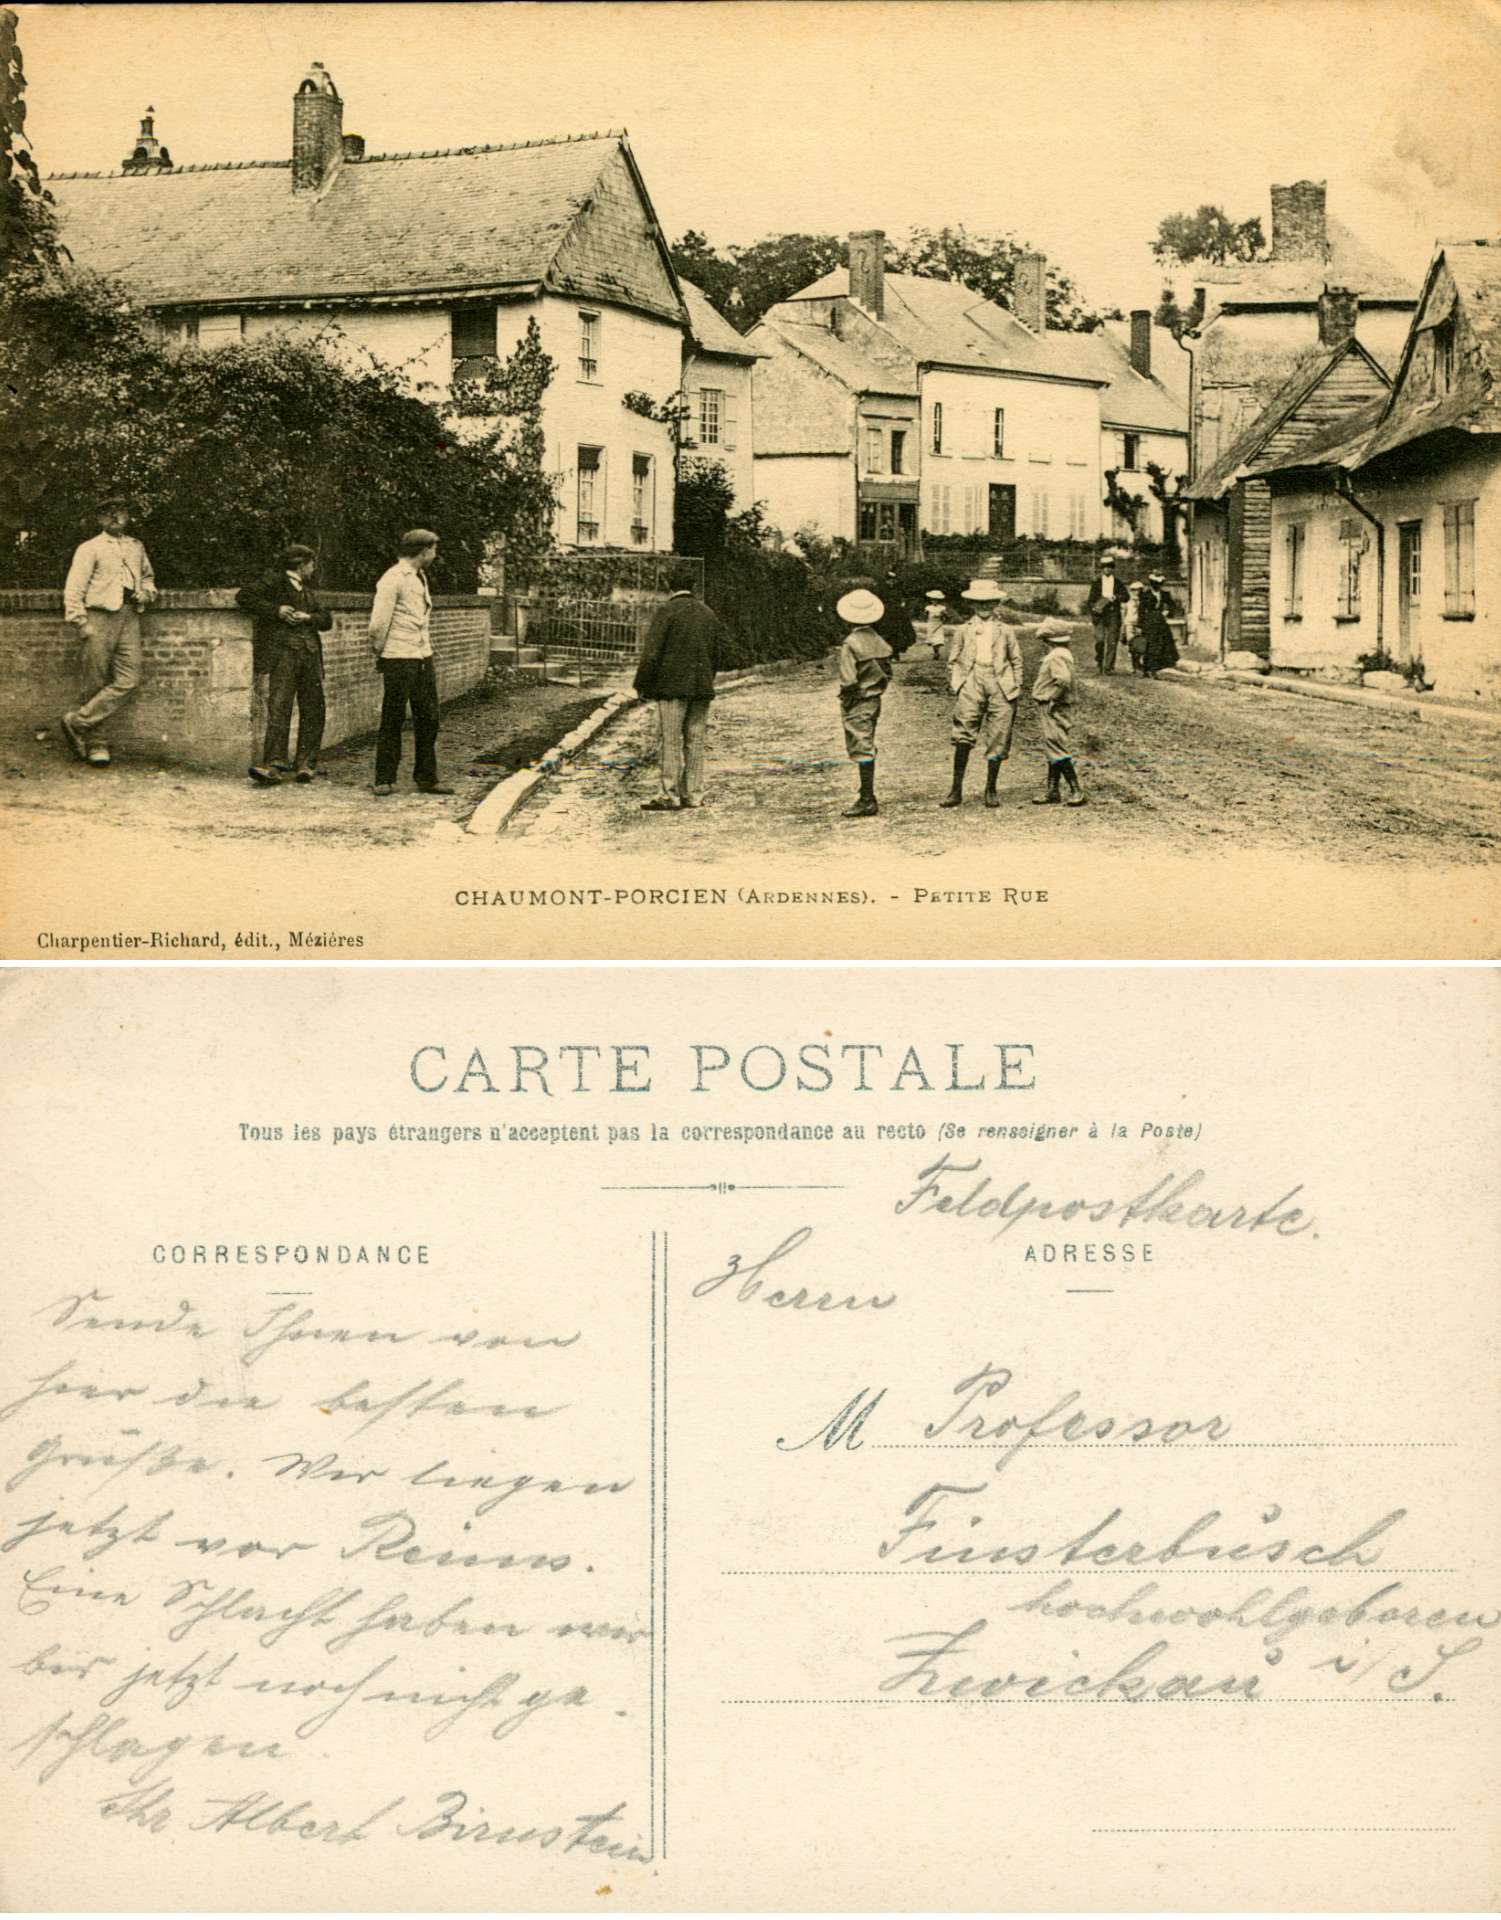 CHAUMONT-PORCIEN (ARDENNES). - PETITE RUE
Charpentier-Richard, édit., Mézières
CARTE POSTALE
Tous les pays étrangers n'acceptent pas la correspondance au recto (Se renseigner à la Poste)
Feldpostkarte.
CORRESPONDANCE
Sende Ihnen von
hier die besten
Grüße. Wir liegen
jetzt vor Reims.
Eine Schlacht haben wir
bis jetzt noch nicht ge-
schlagen.
Ihr Albert Birnstein.
ADRESSE
Herrn
M Professor
Finsterbusch
hochwohlgeboren
Zwickau i/S.